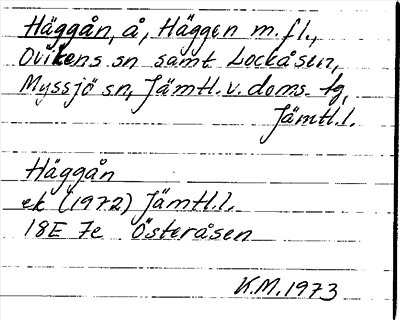 Häggån, å, Häggen m.fl.,
Ovikens sn samt Lockåsen,
Myssjö sn, Jämtl.v.doms.-lg,
Jämtl.l.
Häggån
ek (1972) Jämtl.l.
18E 7e Österåsen
K.M.1973